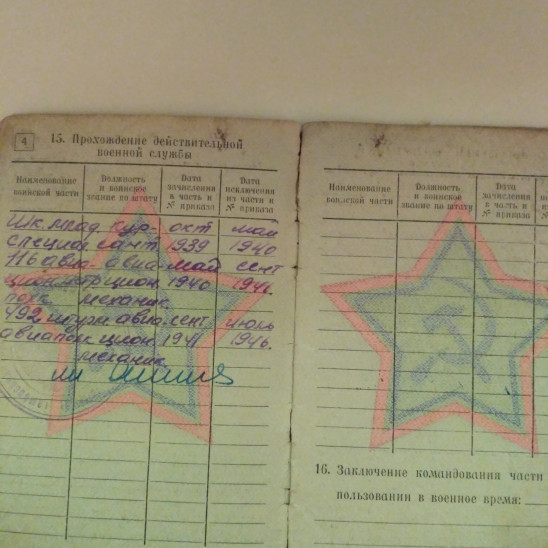 4
15. Прохождение действительной
военной службы
Наименование воинской части
Должность и воинское звание по штату
Дата зачисления в часть и № приказа
Дата исключения из части и № приказа
Шк. млад. кур- окт май
специал. сант 1939 1940
116 авиа- авиа- май сент
цион. 1940 1941
полк механик.
492 штурм авиа. сент. июль
авиаполк цион. 1941 1946.
механик.
Наименование воинской части
Должность и воинское звание по штату
Дата зачисления в часть и № приказа
16. Заключение командования части
пользовании в военное время: